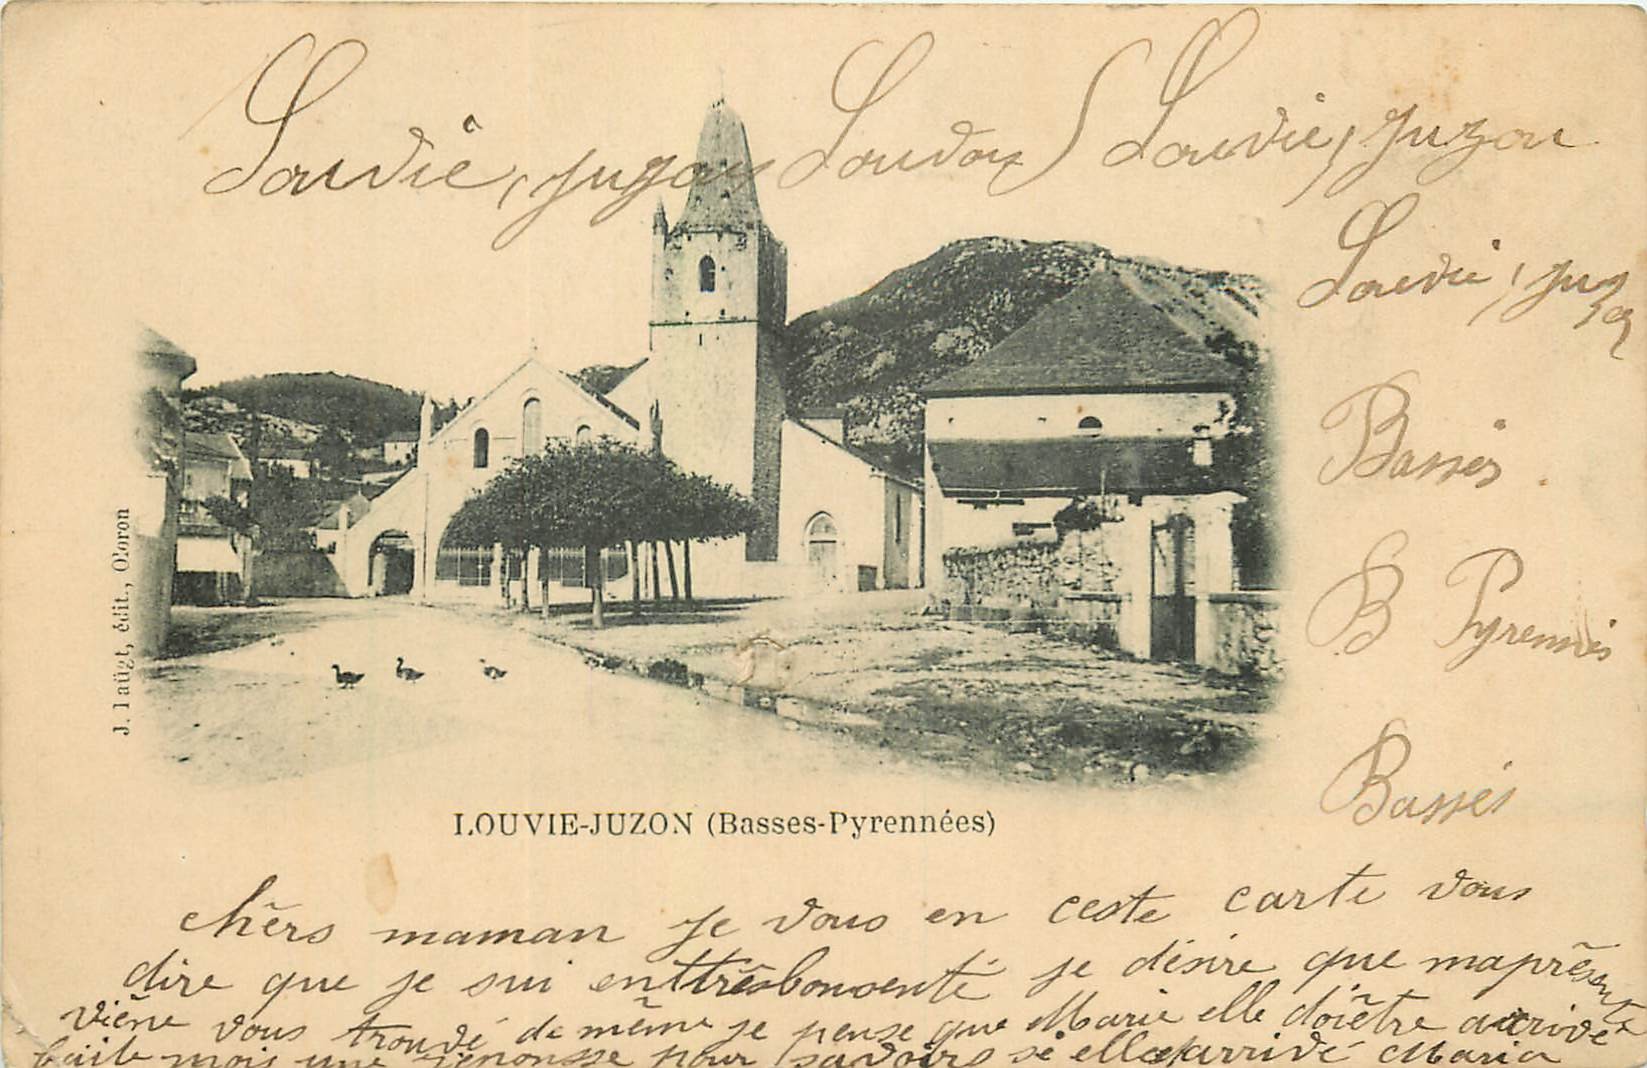 Louvie, juzon Loudou Louvie, juzou
Louvie, juzon
Basses
B Pyrennés
Basses
J. Laügt, édit., Oloron
LOUVIE-JUZON (Basses-Pyrennées)
chèrs maman je vous en ceste carte vous
dire que je sui enttrêsbonsenté je désire que maprésente
viêne vous trouvé de même je pense que Marie elle doiêtre arrivée
faite mois une rénonsse pour savoirs si elle arrivé Maria